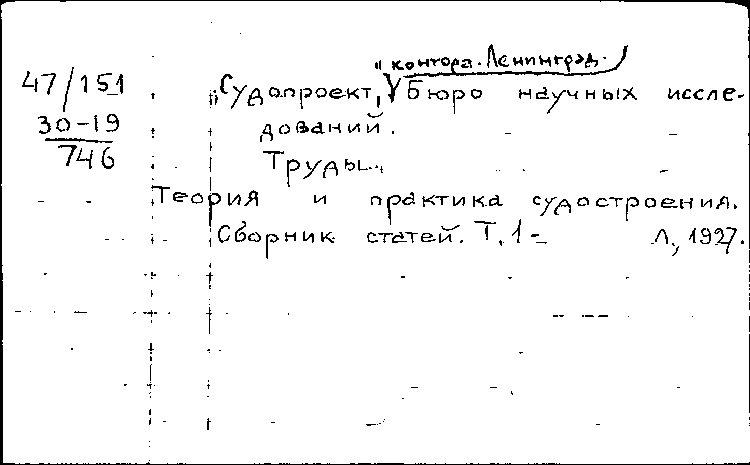 " контора. Ленинград.
47/151 „Судопроект, Бюро научных иссле-
30-19 дований.
746 Труды.
Теория и практика судостроения.
Сборник статей. Т. 1- Л., 1927.